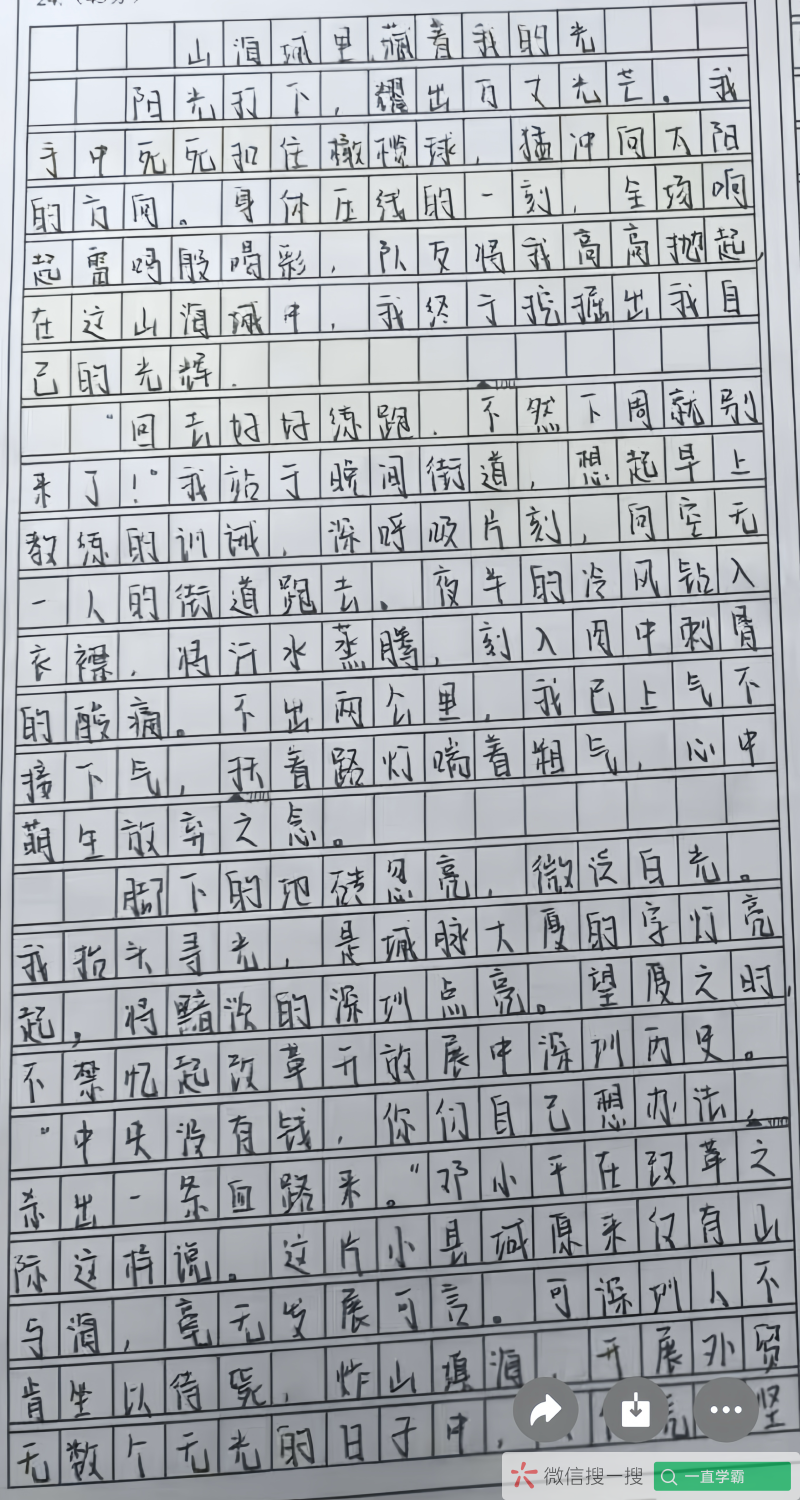 24.(45分)
山海城里,藏着我的光
阳光打下,耀出万丈光芒。我
手中死死扣住橄榄球,猛冲向太阳
的方向。身体压线的一刻,全场响
起雷鸣般喝彩,队友将我高高抛起,
在这山海城中,我终于挖掘出我自
己的光辉.
“回去好好练跑.不然下周就别
来了!”我站于晚间街道,想起早上
教练的训诫,深呼吸片刻,向空无
一人的街道跑去。夜半的冷风钻入
衣襟,将汗水蒸腾,刻入肉中刺骨
的酸痛。不出两公里,我已上气不
接下气,扶着路灯喘着粗气,心中
萌生放弃之念。
脚下的地砖忽亮,微泛白光。
我抬头寻光,是城脉大厦的字灯亮
起,将黯淡的深圳点亮。望厦之时,
不禁忆起改革开放展中深圳历史。
“中央没有钱,你们自己想办法,
杀出一条血路来。”邓小平在改革之
际这样说。这片小县城原来仅有山
与海,毫无发展可言。可深圳人不
肯坐以待毙,炸山填海,开展外贸
无数个无光的日子中,坚
微信搜一搜
一直学霸